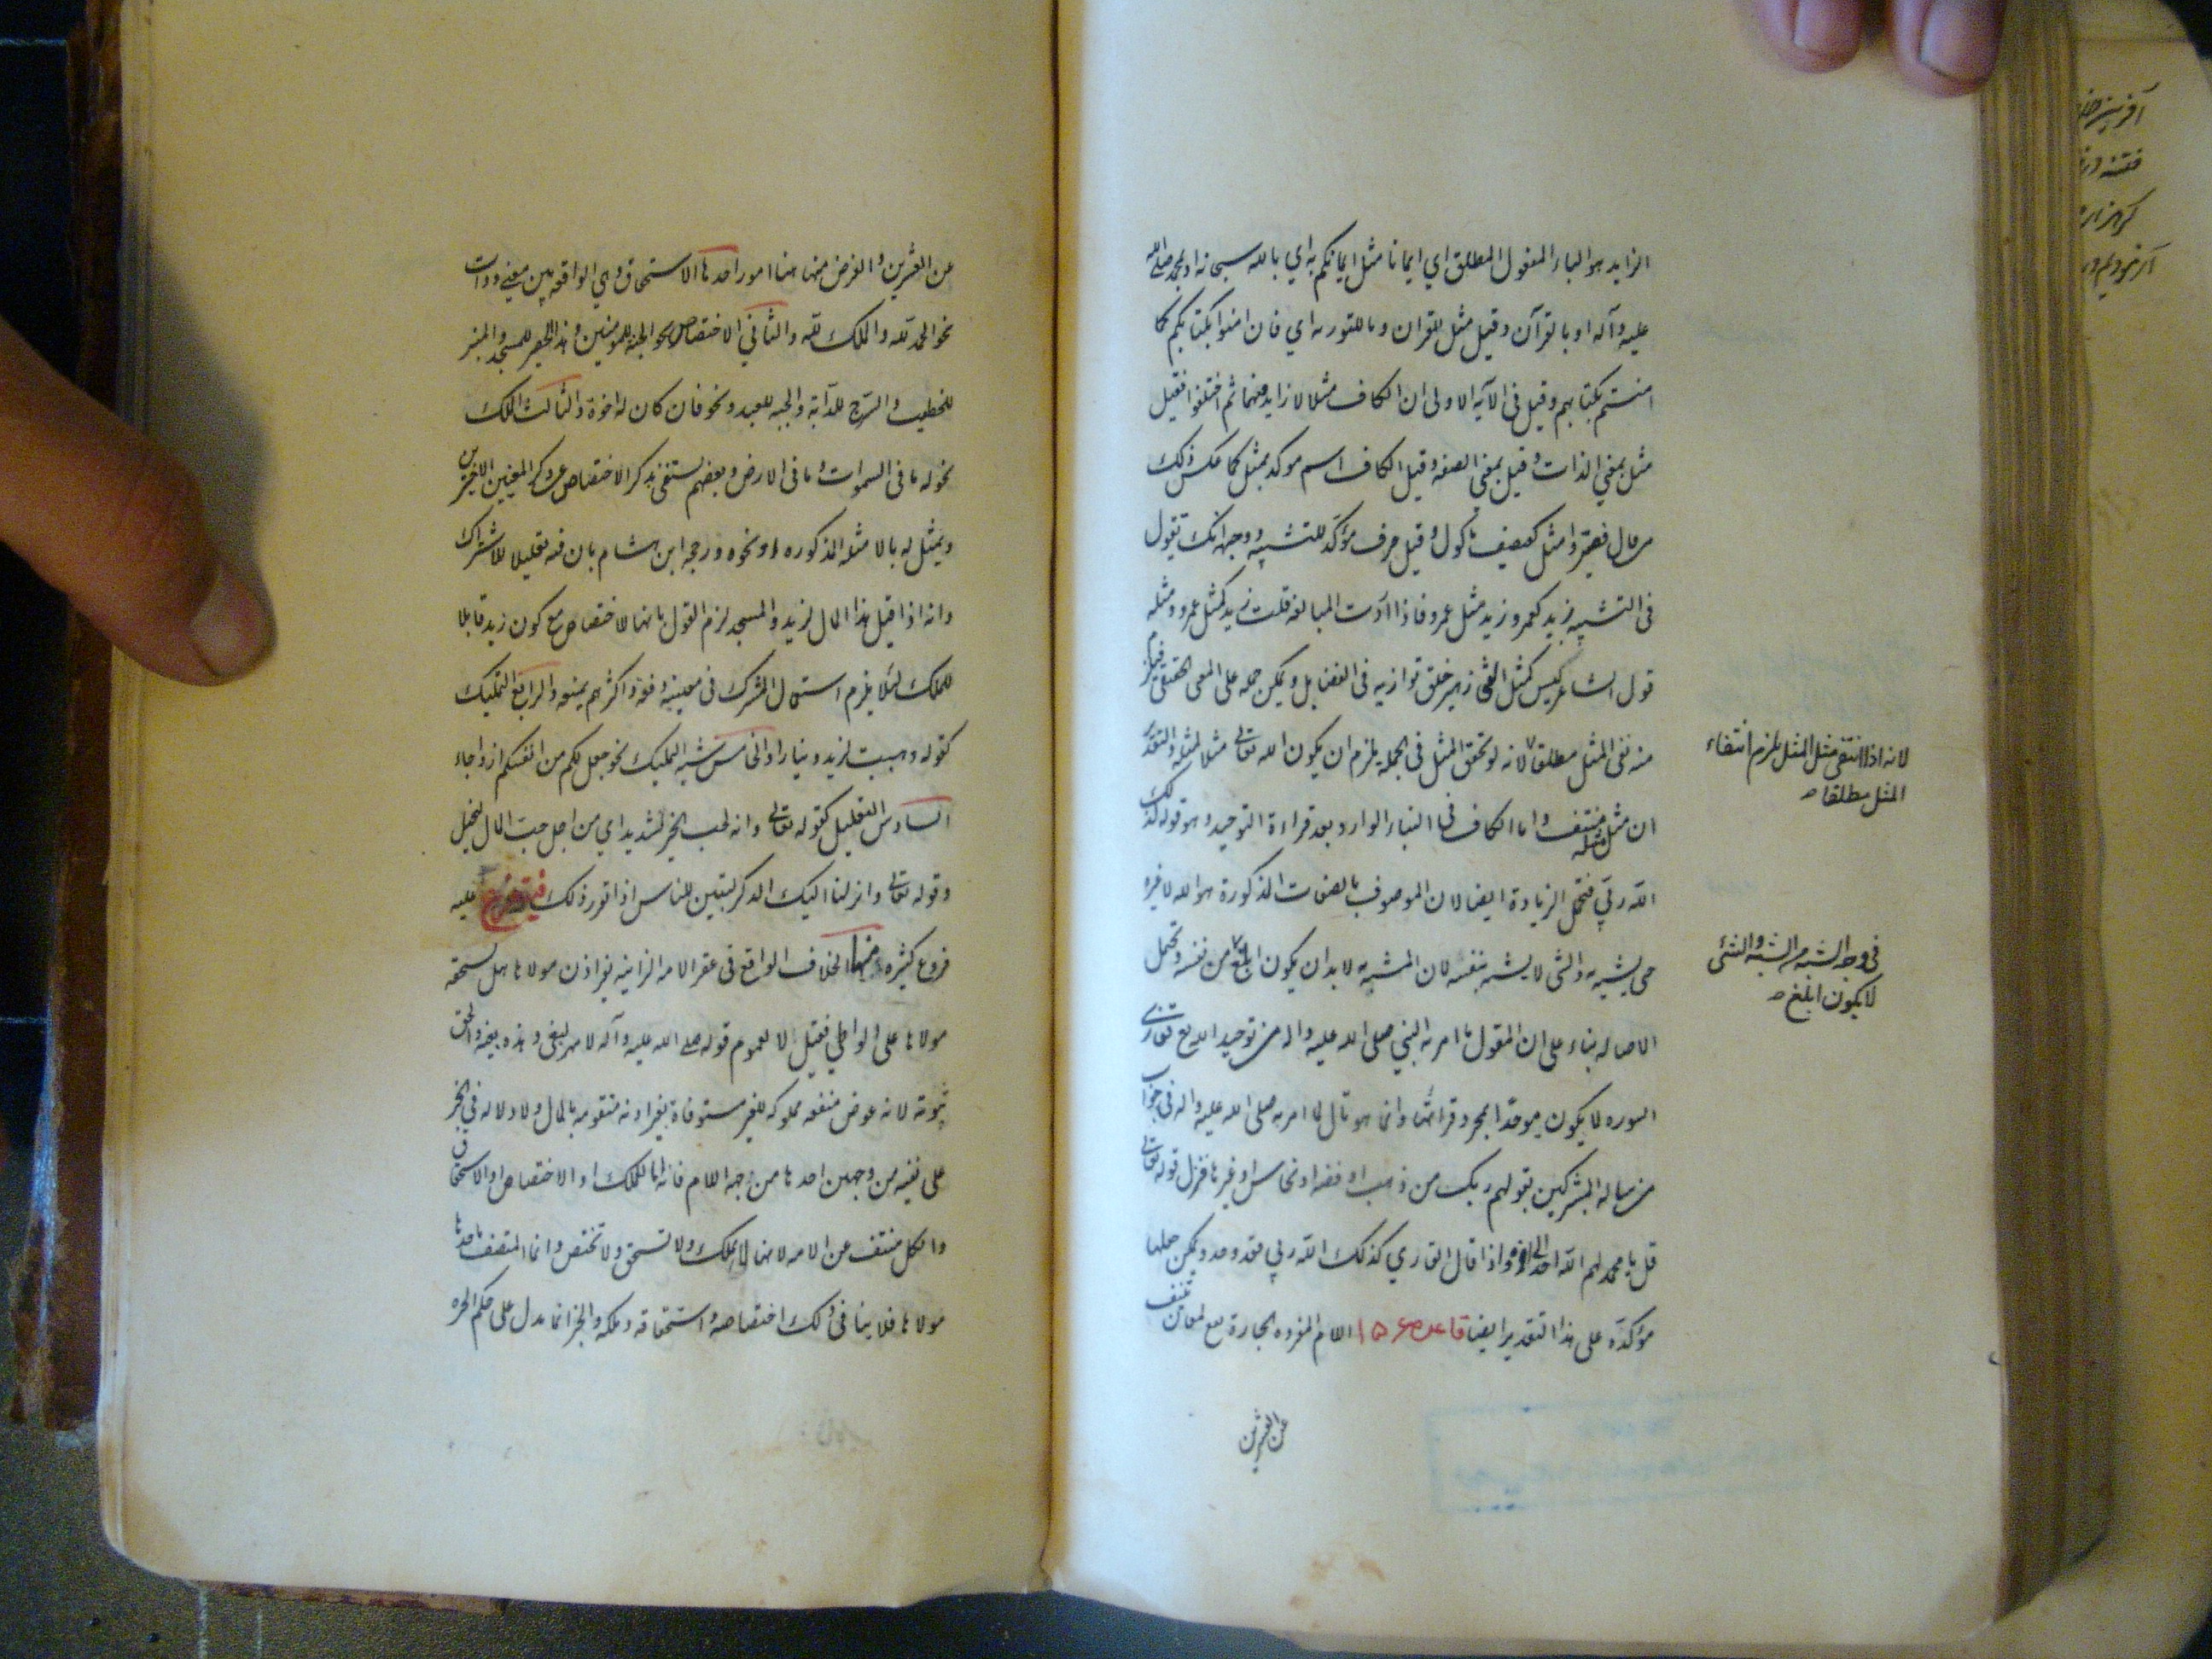 الزايد هو الباء المفعول المطلق اي ايمانا مثل ايمانكم به اي بالله سبحانه او بمحمد صلى الله
عليه وآله او بالقرآن وقيل مثل للقران وما للتوريه اي فان امنوا بكتابكم كما
امنتم بكتابهم وقيل في الآية الاولى ان الكاف مثلا لا زايد منهما ثم اختلفوا فقيل
مثل بمعنى الذات وقيل بمعنى الصفه وقيل الكاف اسم موكد بمثل كما عكس ذلك
من قال فصيروا مثل كعصف مأكول وقيل حرف مؤكد للتشبيه ووجه انك تقول
في التشبيه زيد كعمرو زيد مثل عمرو فاذا اردت المبالغه قلت زيد كمثل عمرو ومثله
قول الشاعر ليس كمثل الفتى زهير خلق توازيه في الفضايل ويمكن حمله على المعنى الحقيقي فيلزم
منه نفي المثل مطلقا لانه لو تحقق المثل في الجمله يلزم ان يكون الله تعالى مثلا لمثله والتقدير
ان مثل مثله منتف واما الكاف في البناء الوارد بعد قراءة التوحيد وهو قوله كذلك
الله ربي فتحتمل الزيادة ايضا لان الموصوف بالصفات المذكورة هو الله لا غيره
حتى يشبه به والشى لا يشبه بنفسه لان المشبه به لا بد ان يكون ابلغ من نفسه وتحتمل
الاصاله بناء على ان المقول ما امر به النبي صلى الله عليه واله من توحيد الله مع تقارى
السوره لا يكون موحدا بمجرد قرائتها وانما هو تال لما امر به صلى الله عليه واله في جواب
من ساله المشركين بقولهم ربك من ذهب او فضه او نحاس او غيرها فنزل قوله تعالى
قل يا محمد لهم الله احد الى اخره واذا قال القاري كذلك الله ربي فقد وحد ويمكن جعلها
مؤكده على هذا التقدير ايضا قاعده ١٥٤ اللام المفرده الجارة مع لمعان تنيف
عن العشرين
لانه اذا انتفى مثل المثل يلزم انتفاء
المثل مطلقا
في وجه الشبه من المشبه والشى
لا يكون ابلغ
عن العشرين والغرض منها هنا امور احدها الاستحقاق وهي الواقعه بين معنى وذات
نحو الحمد لله والملك لله والثاني الاختصاص نحو الجنة للمومنين وهذا الحصير للمسجد والمنبر
للخطيب والسرج للدابة والجبه للعبد ونحو فان كان له اخوة والثالث الملك
نحو له ما في السموات وما في الارض وبعضهم يستغني بذكر الاختصاص عن ذكر المعنيين الاخيرين
ويمثل له بالامثله المذكوره ونحوه ورجحه ابن هشام بان فيه تقليلا للاشتراك
وانه اذا قيل هذا المال لزيد والمسجد لزم القول بانها للاختصاص مع كون زيد قابلا
للملك لئلا يلزم استعمال المشترك في معنييه دفعة واكثرهم يمنعه والرابع التمليك
كقوله وهبت لزيد دينارا والخامس شبه التمليك نحو جعل لكم من انفسكم ازواجا
السادس التعليل كقوله تعالى وانه لحب الخير لشديد اي من اجل حب المال لبخيل
وقوله تعالى وانزلنا اليك الذكر لتبين للناس اذا تقرر ذلك فيتفرع عليه
فروع كثيره منها الخلاف الواقع في عقر الامه الزانيه بغير اذن مولاها هل يستحقه
مولاها على الواطي فقيل لا لعموم قوله صلى الله عليه وآله لا مهر لبغي وهذه بغيه والحق
ثبوته لانه عوض منفعه مملوكه للغير مستوفاة بغير اذنه متقومه بالمال ولا دلاله في الخبر
على نفيه من وجهين احدها من جهه اللام فانه اما للملك او الاختصاص او الاستحقاق
والكل منتف عن الامه لانها لا تملك ولا تستحق ولا تختص وانما المتصف باحدها
مولاها فلا ينافي ذلك اختصاصه واستحقاقه وملكه والخبر انما يدل على حكم الحره